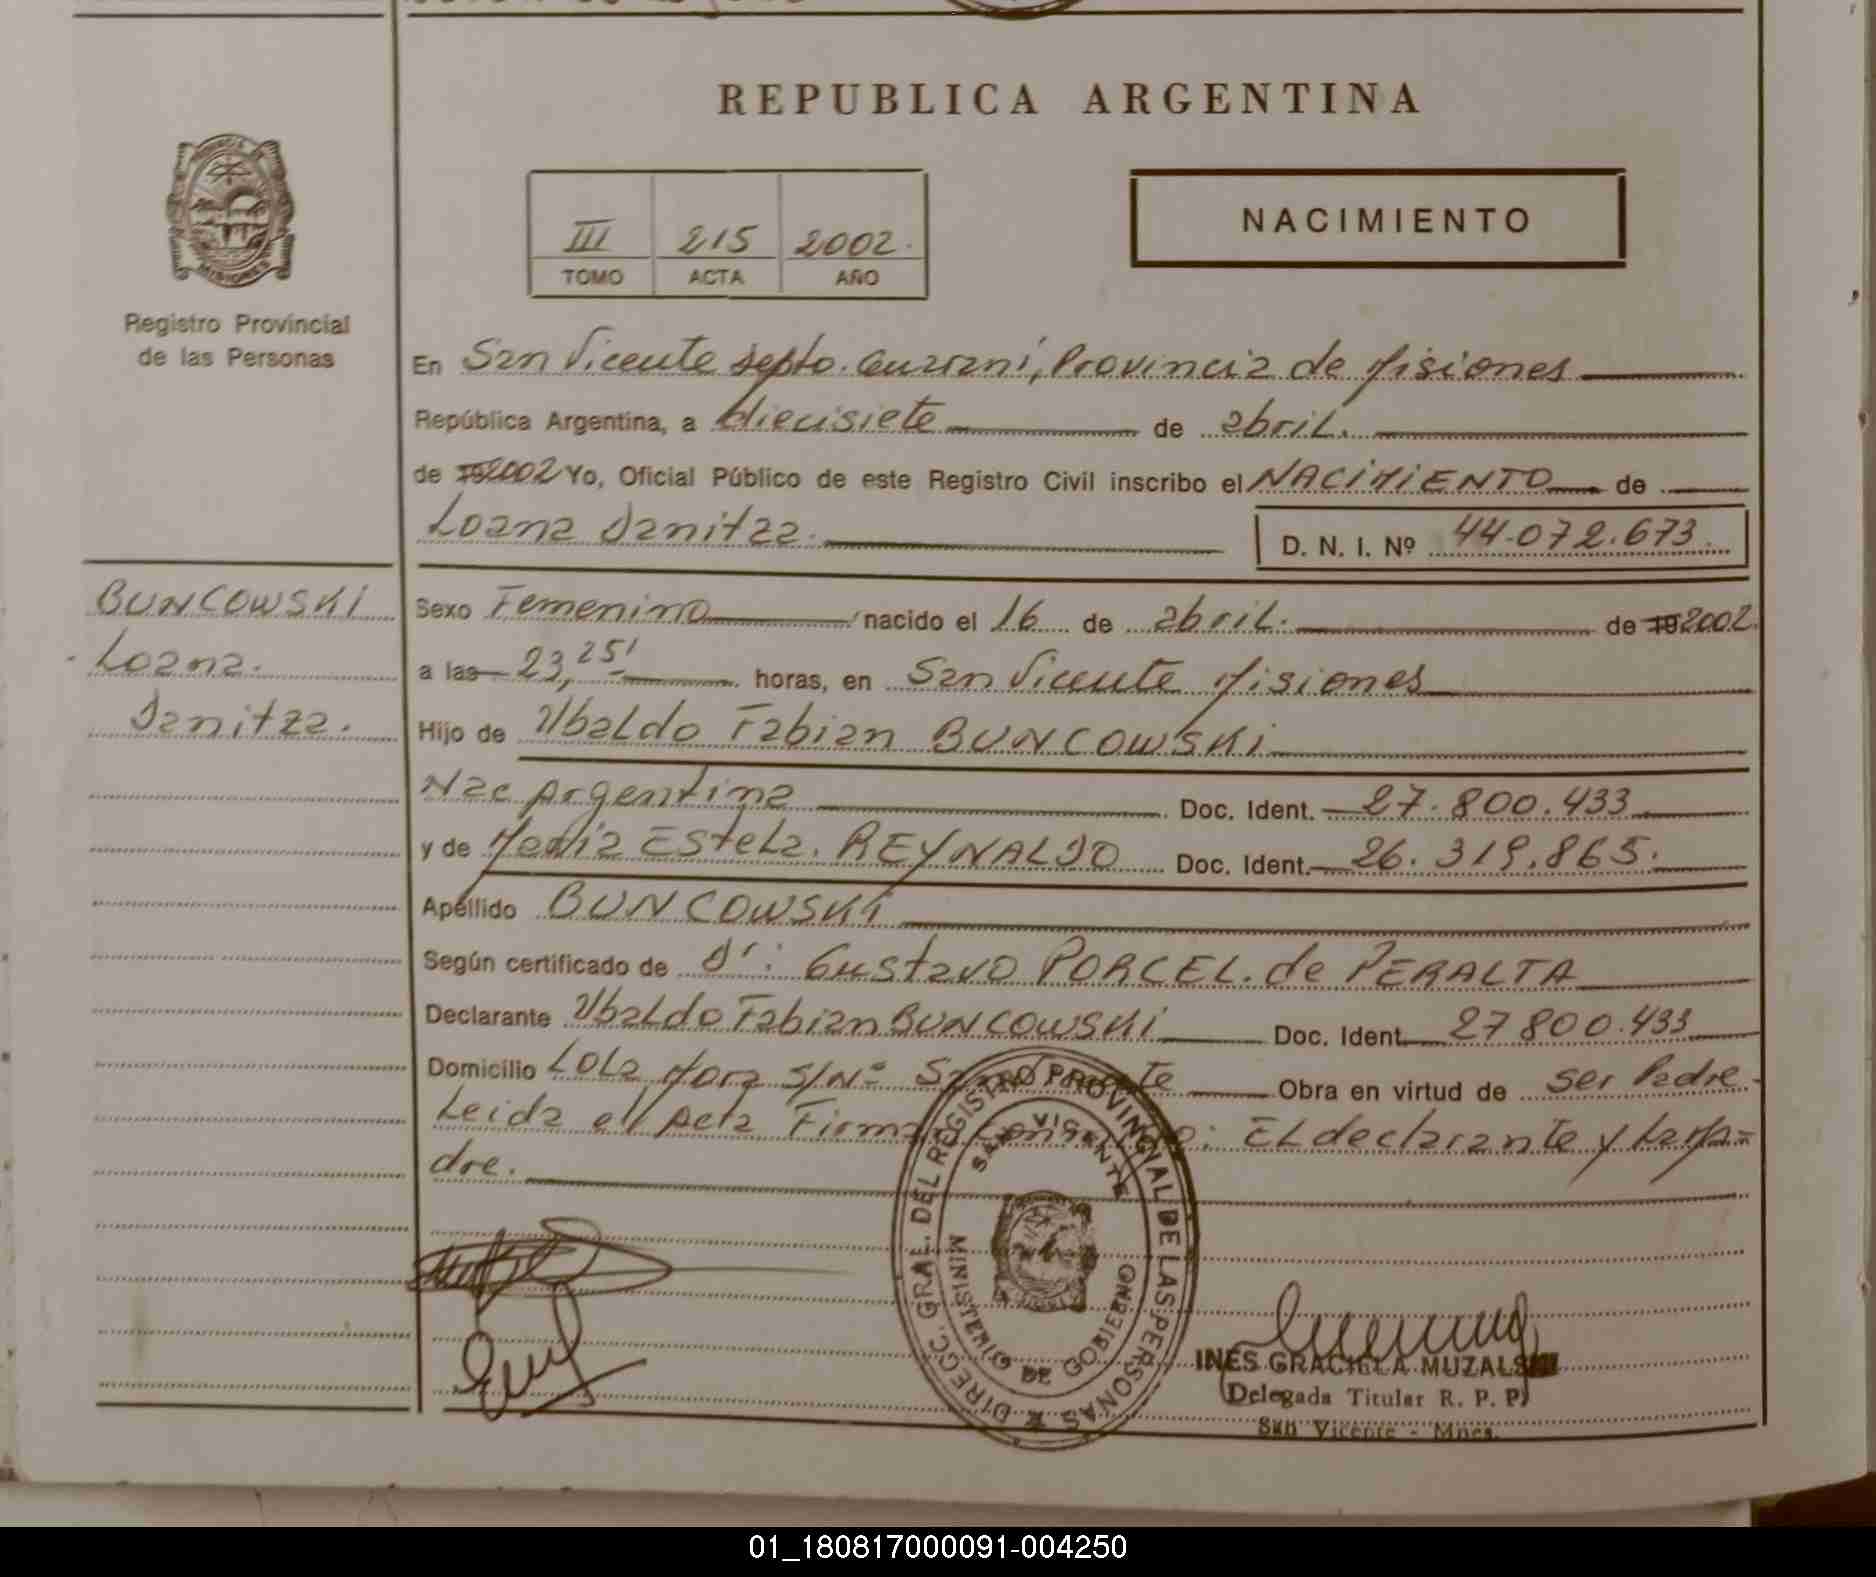 REPUBLICA ARGENTINA
PROVINCIA DE MISIONES
Registro Provincial
de las Personas
III 215 2002.
TOMO ACTA AÑO
NACIMIENTO
En San Vicente Depto. Guaraní, Provincia de Misiones
República Argentina, a diecisiete de abril.
de 192002 Yo, Oficial Público de este Registro Civil inscribo el NACIMIENTO de
Loana Danitza.
D. N. I. Nº 44.072.673.
BUNCOWSKI
Loana.
Danitza.
Sexo Femenino nacido el 16 de abril. de 192002.
a las 23,25' horas, en San Vicente Misiones
Hijo de Ubaldo Fabian BUNCOWSKI
Nac Argentina Doc. Ident. 27.800.433
y de María Estela. REYNALDO Doc. Ident. 26.319.865.
Apellido BUNCOWSKI
Según certificado de Dr: Gustavo PORCEL. de PERALTA
Declarante Ubaldo Fabian BUNCOWSKI Doc. Ident. 27800.433
Domicilio LOLa Mora S/Nº San Vicente Obra en virtud de ser Padre.
Leida el Acta Firma conmigo: EL declarante y La Ma=
dre.
DIREGC. GRAL. DEL REGISTRO PROVINCIAL DE LAS PERSONAS
SAN VICENTE
MINISTERIO DE GOBIERNO
INES GRACIELA MUZALSKI
Delegada Titular R. P. P.
San Vicente - Mnes.
01_180817000091-004250